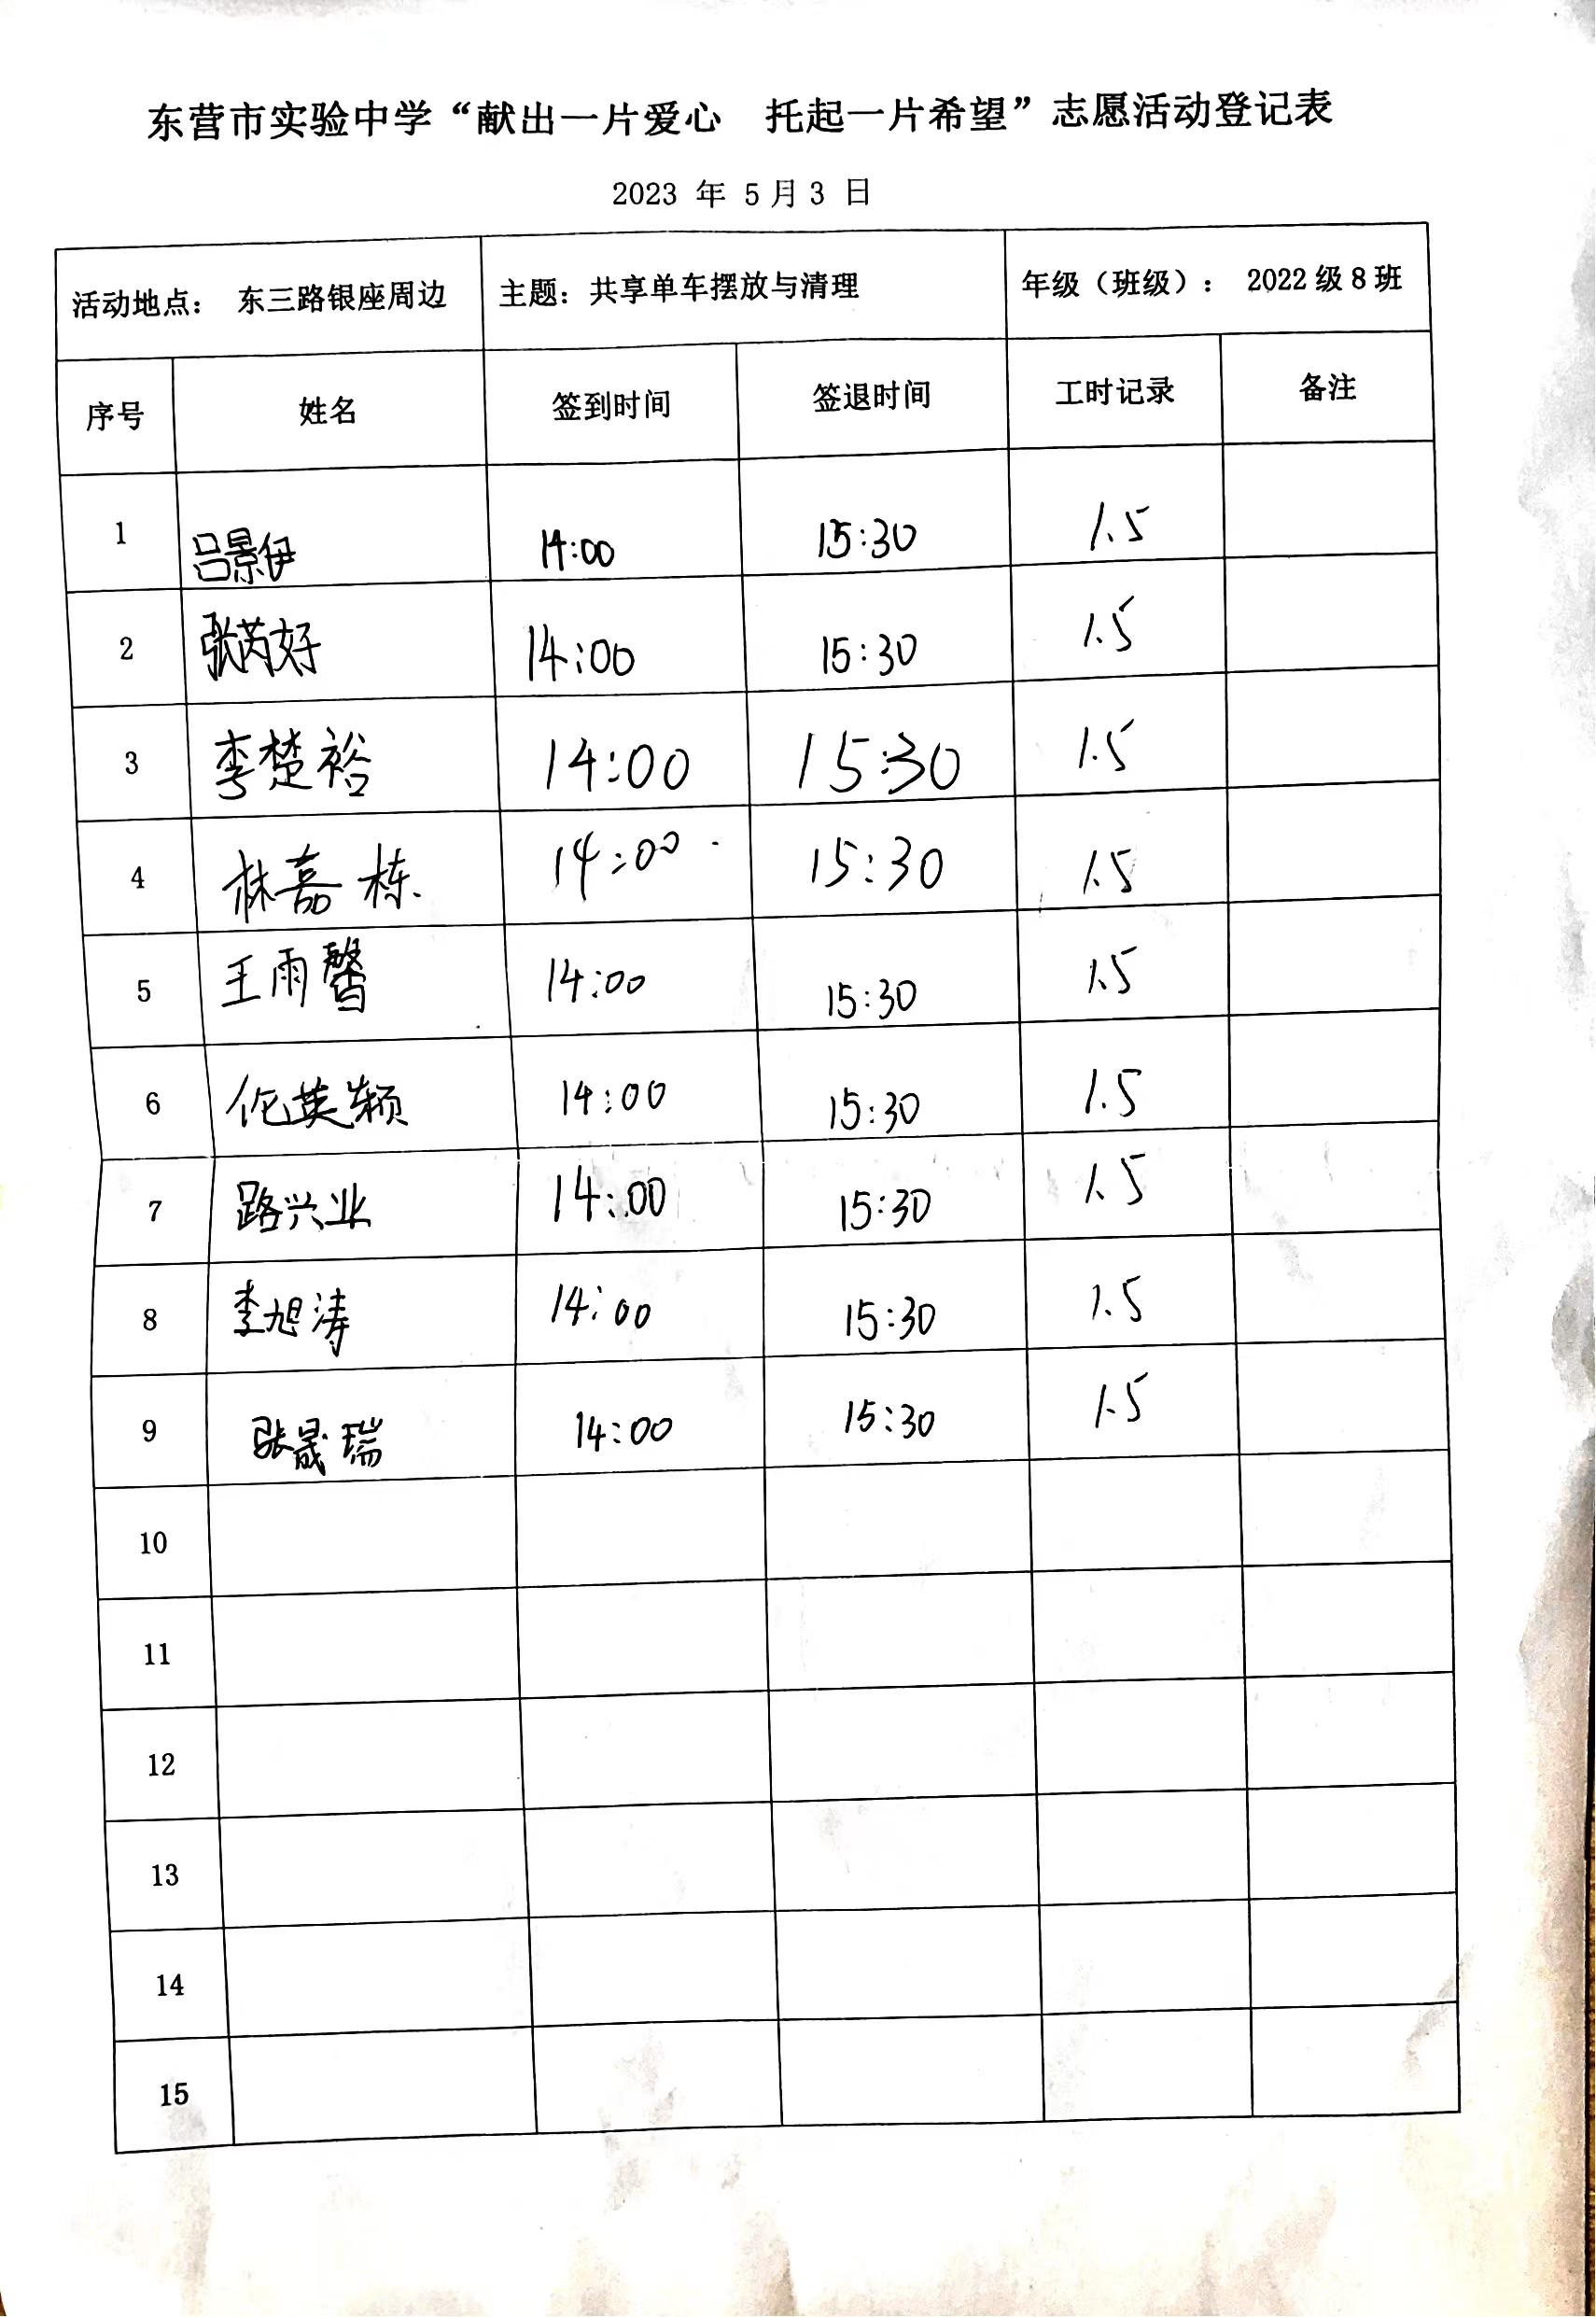 东营市实验中学“献出一片爱心 托起一片希望”志愿活动登记表
2023 年 5月3 日
活动地点： 东三路银座周边 主题：共享单车摆放与清理 年级（班级）： 2022级8班
序号 姓名 签到时间 签退时间 工时记录 备注
1 吕景伊 14:00 15:30 1.5
2 张芮好 14:00 15:30 1.5
3 李楚裕 14:00 15:30 1.5
4 林嘉栋 14:00 15:30 1.5
5 王雨馨 14:00 15:30 1.5
6 英颖 14:00 15:30 1.5
7 路兴业 14:00 15:30 1.5
8 李旭涛 14:00 15:30 1.5
9 张晟瑞 14:00 15:30 1.5
10
11
12
13
14
15